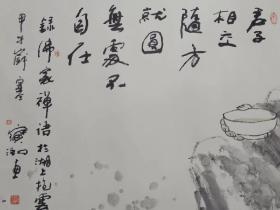 君子
相交
随方
就圆
無處不
自在
錄佛家禪語於湖上抱雲
甲午歲寒冬